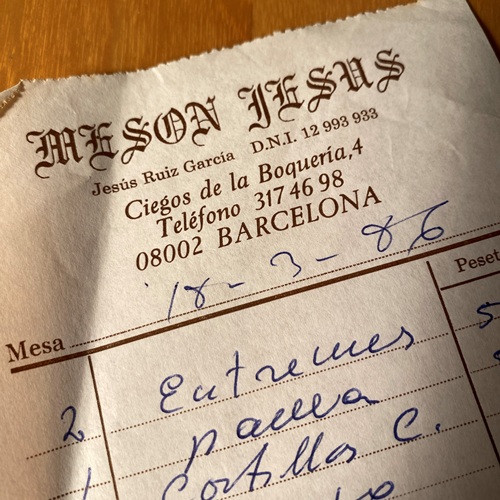 MESON JESUS
Jesús Ruiz García D.N.I. 12 993 933
Ciegos de la Boquería,4
Teléfono 317 46 98
08002 BARCELONA
18 - 3 - 86
Mesa
Peset
2 Entremes 5
paella
1 Costillas C.